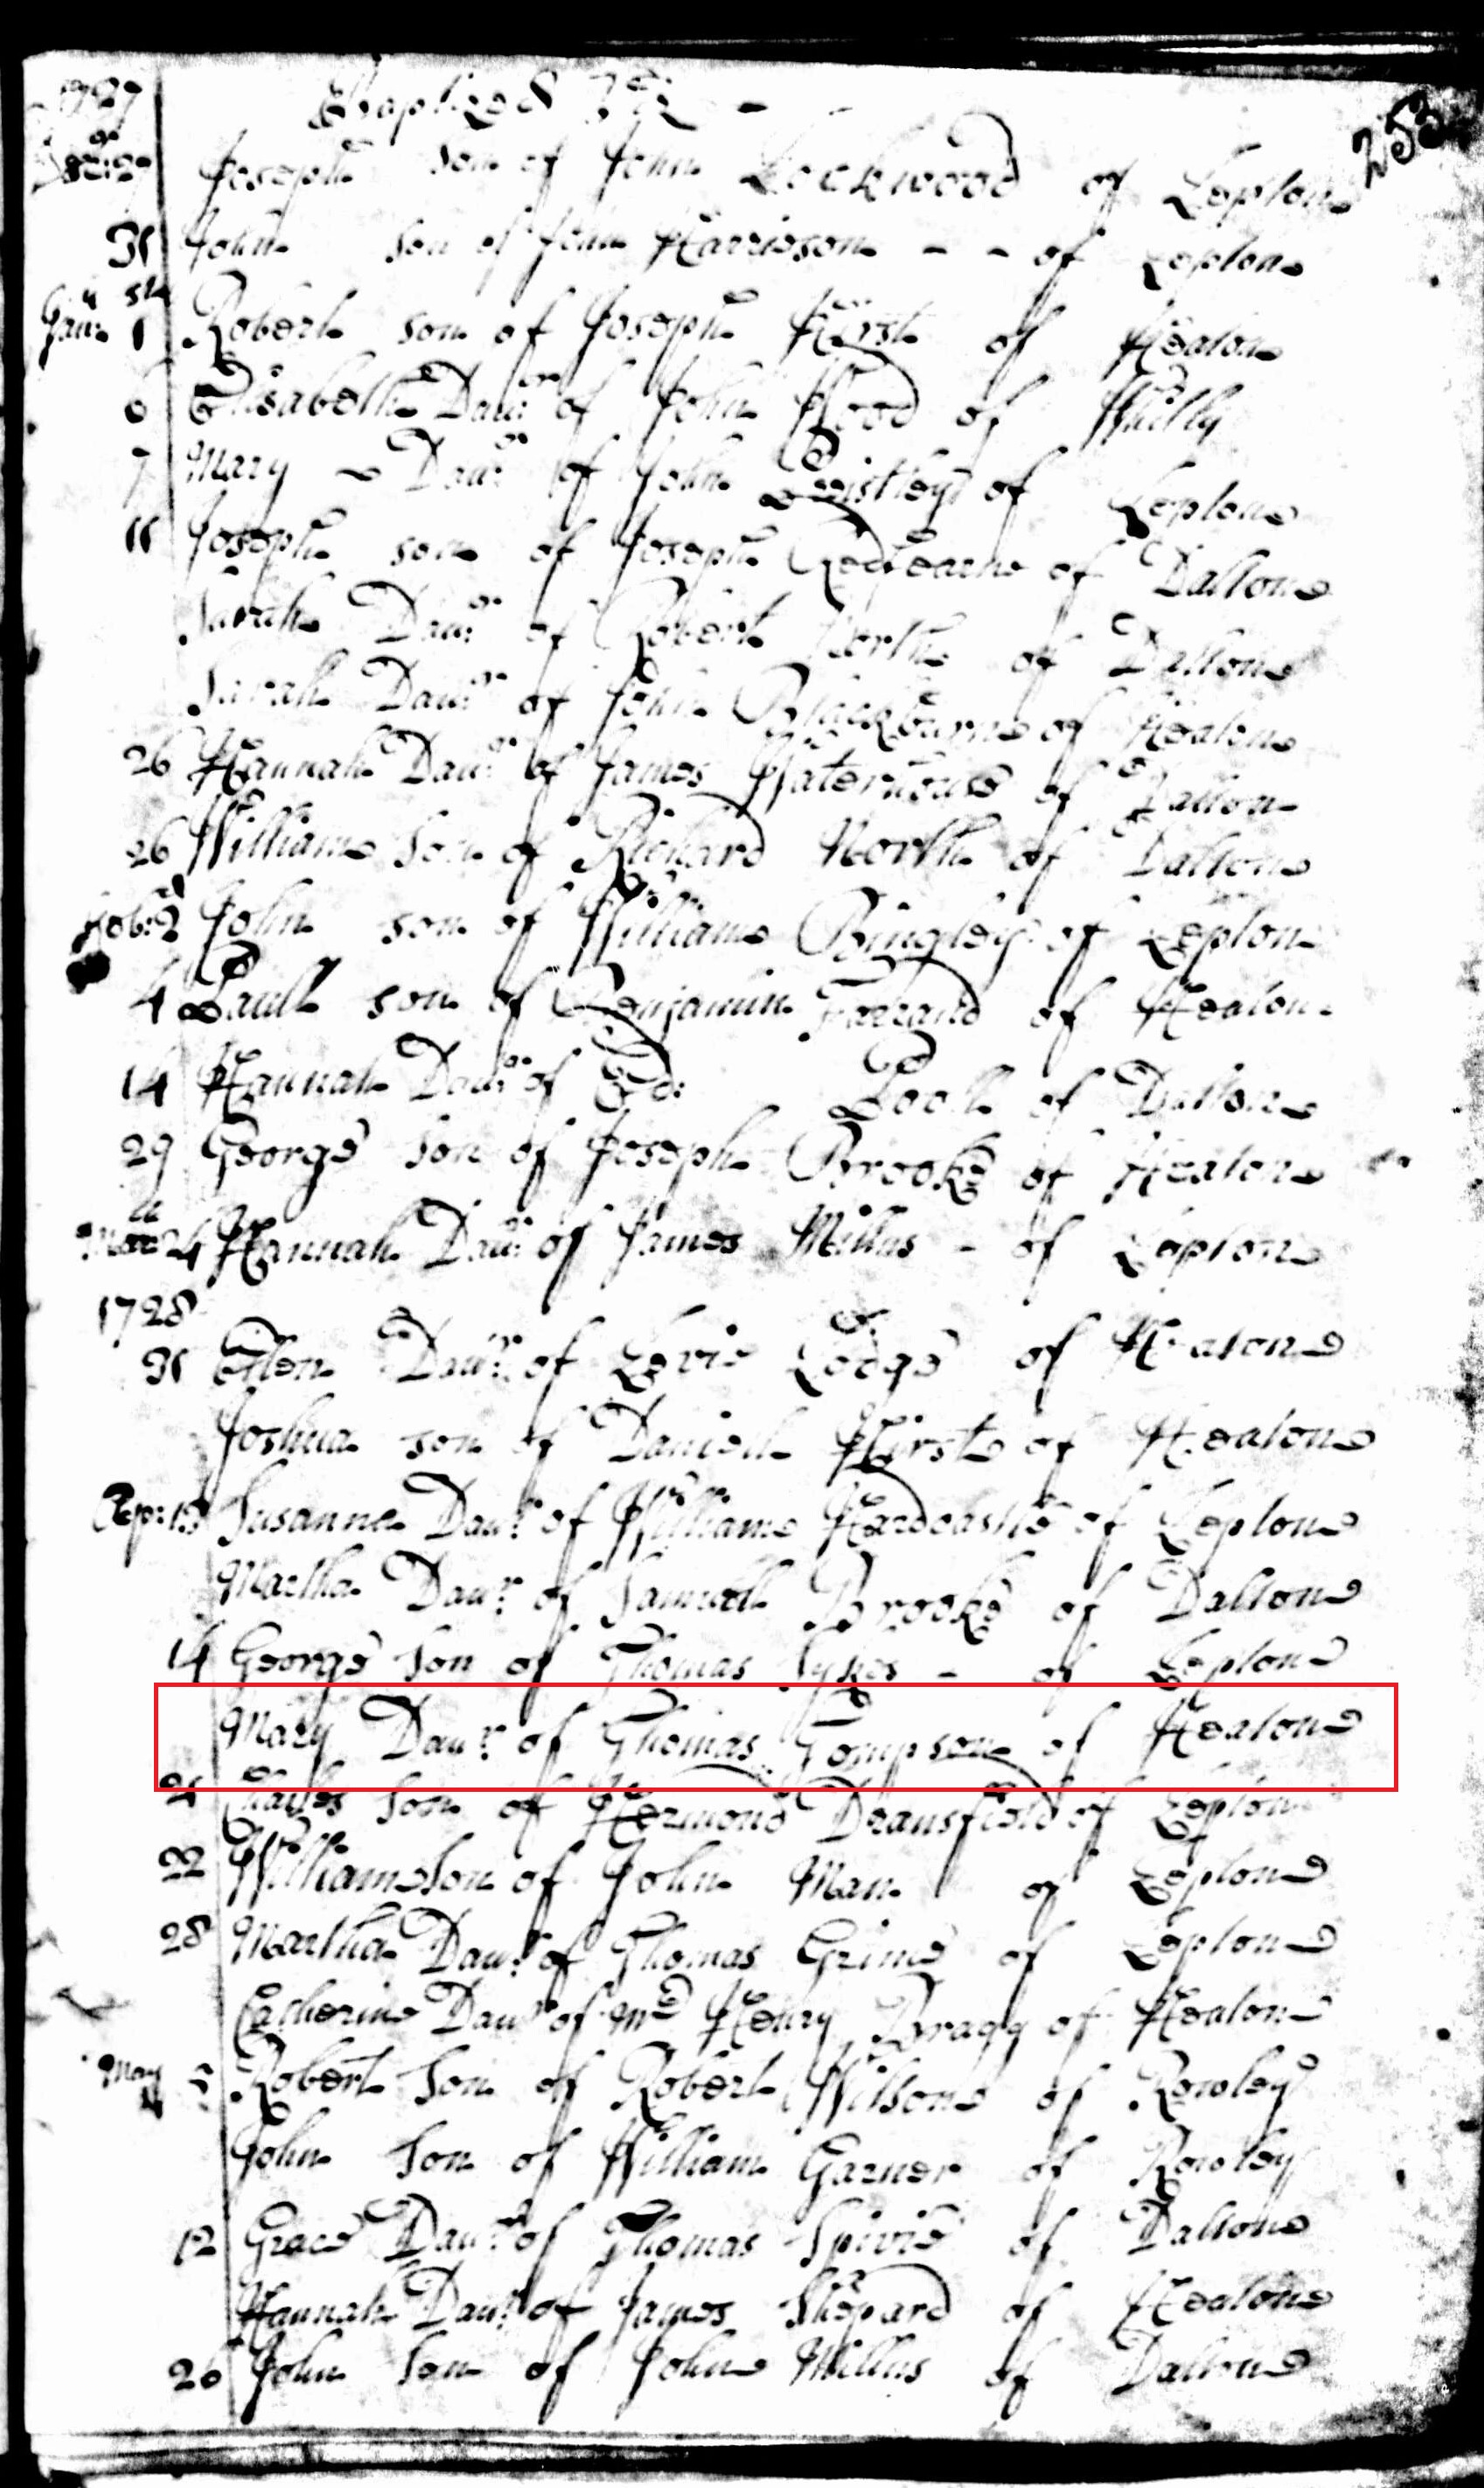 1727 Baptized
253
Joseph son of John Lockwood of Lepton
31 John Son of John Harrieson - - of Lepton
Janu: 1st Robert son of Joseph Hirst of Heaton
6 Elisabeth Daur: of John Wood of Whitly
7 Mary Daur: of John of Lepton
11 Joseph son of Joseph Redfearne of Dalton
Sarah Daur: of Robert North of Dalton
Sarah Daur: of John Blackburne of Heaton
26 Hannah Daur: of James Waterhouse of Dalton
26 William Son of Richard North of Dalton
Feb: 2d John son of William Bingley of Lepton
4 Paull son of Benjamin Farrand of Heaton
14 Hannah Daur: of Ed: Pooll of Dalton
29 George Son of Joseph Brooke of Heaton
24 Hannah Daur: of James Millns - of Lepton
1728
31 Ellen Daur: of Levie Lodge of Heaton
Joshua son of Daniell Hirst of Heaton
Apr: 13 Susanna Daur: of William Hardcastle of Lepton
Martha Daur: of Samuell Brooke of Dalton
14 George Son of Thomas Sykes - of Lepton
Mary Daur: of Thomas Tompson of Heaton
21 Charles Son of Hermond Dransfield of Lepton
22 William Son of John Man of Lepton
28 Martha Daur: of Thomas Grime of Lepton
Catherine Daur: of Mr Henry Bragg of Heaton
May 5 Robert Son of Robert Willson of Rowley
John Son of William Garner of Rowley
12 Grace Daur: of Thomas Spivie of Dalton
Hannah Daur: of James Shepard of Heaton
26 John Son of John Millns of Dalton